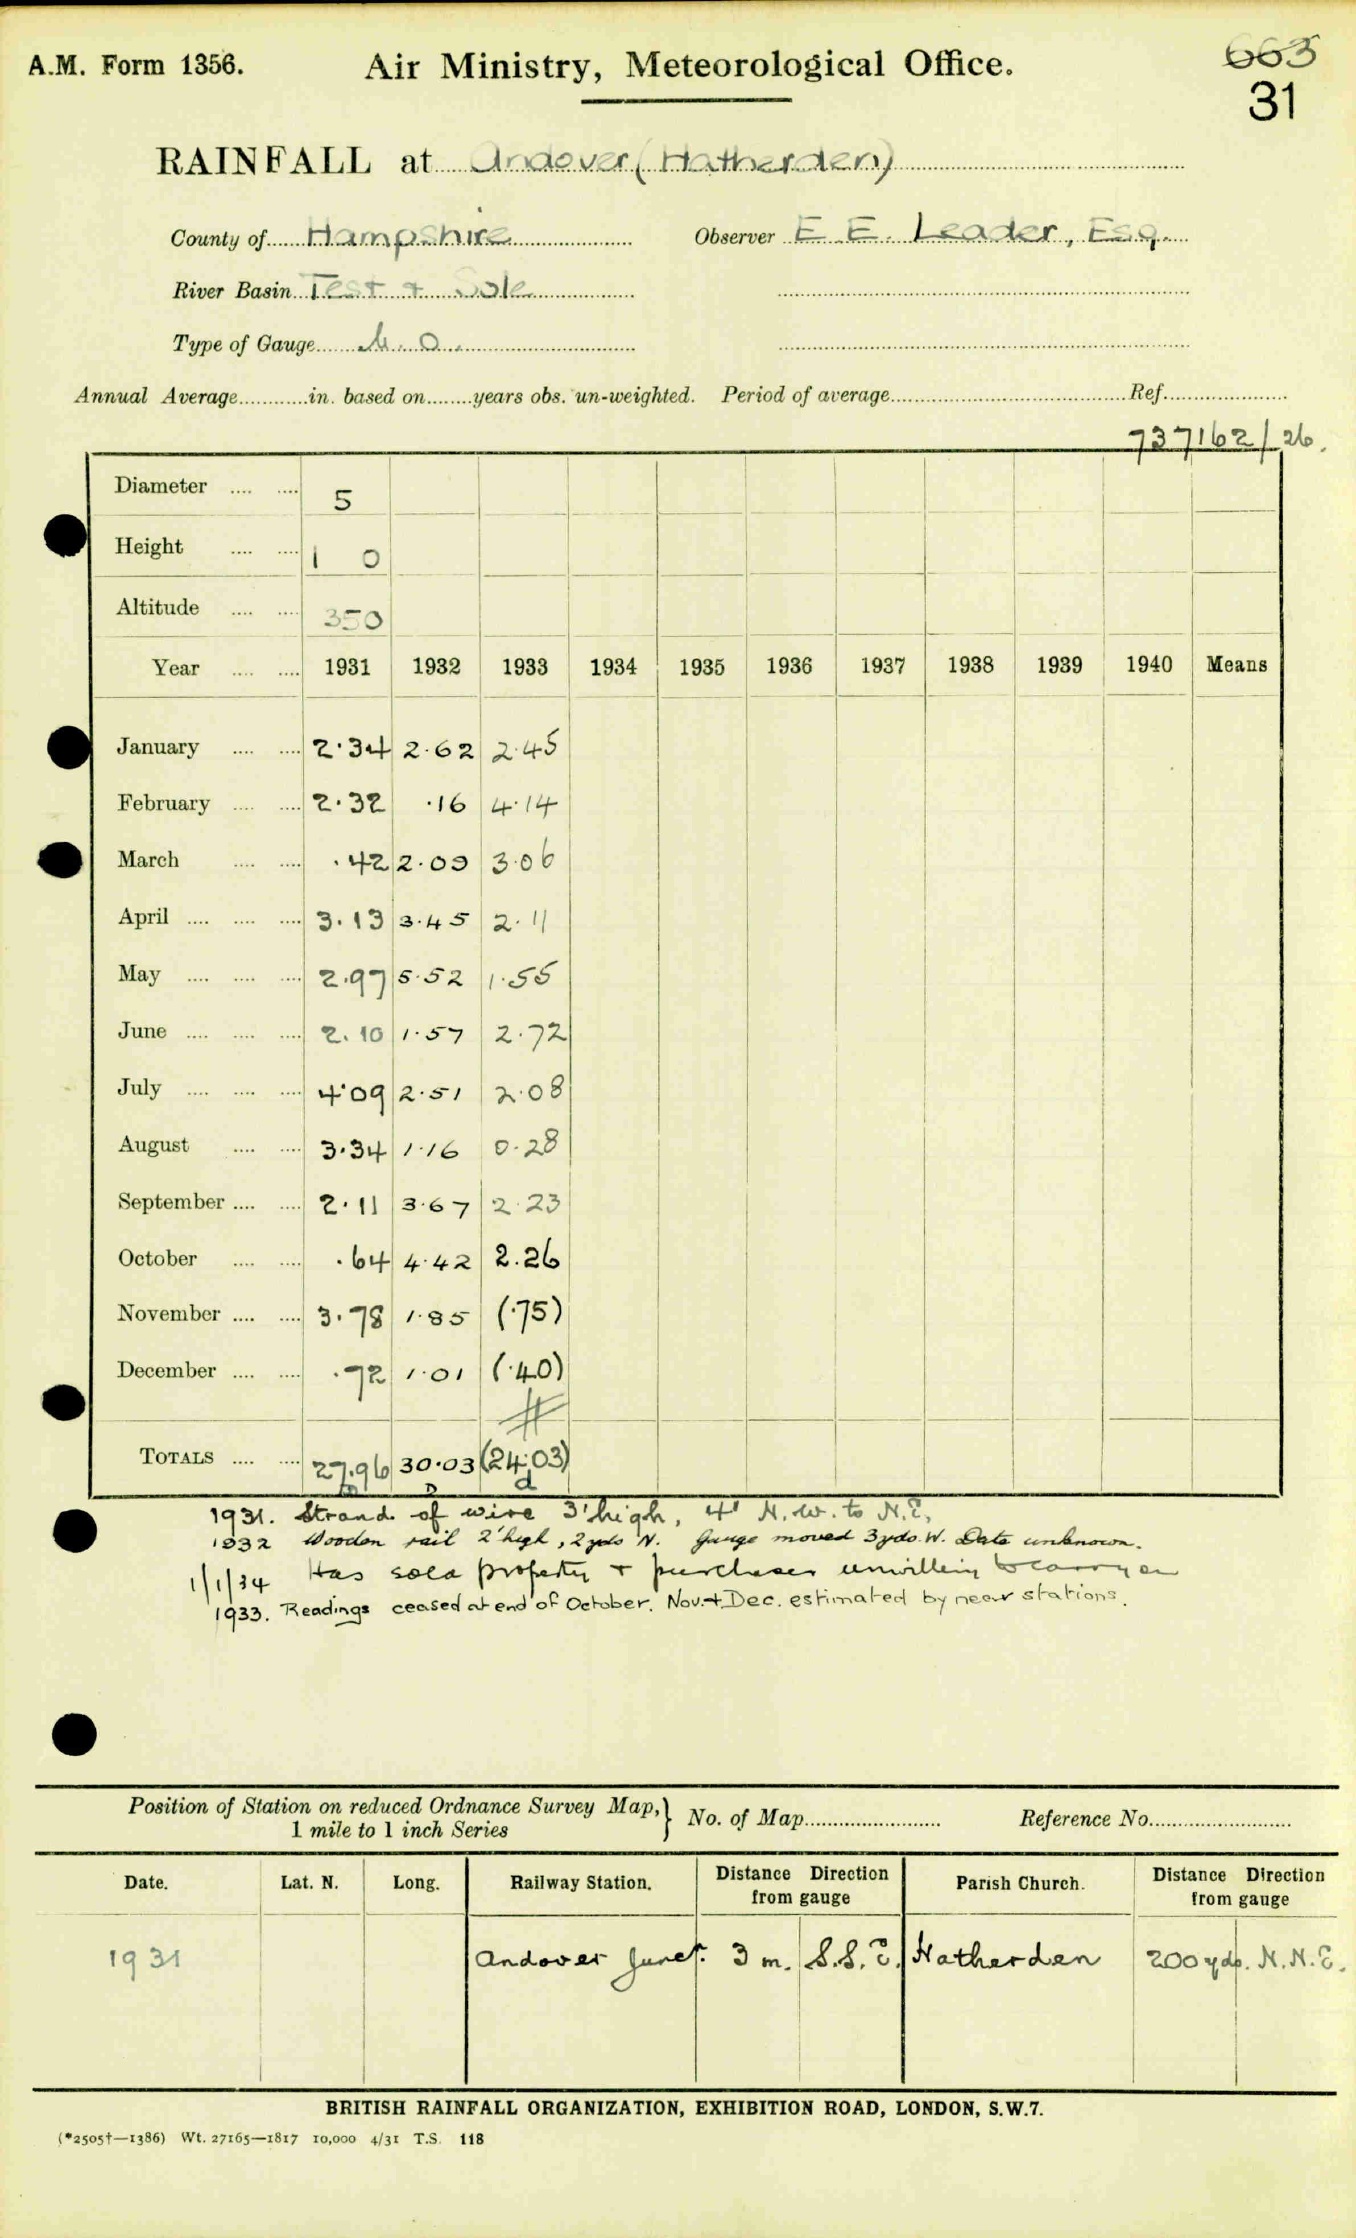 A.M. Form 1356.
Air Ministry, Meteorological Office.
663
31
RAINFALL at Andover (Hatherden)
County of Hampshire Observer E. E. Leader, Esq.
River Basin Test + Sole
Type of Gauge M. O.
Annual Average............in. based on........years obs. un-weighted. Period of average............ Ref............
737162/26.
Diameter .... .... 5
Height .... .... 1 0
Altitude .... .... 350
Year .... .... 1931 1932 1933 1934 1935 1936 1937 1938 1939 1940 Means
January .... .... 2·34 2·62 2·45
February .... .... 2·32 ·16 4·14
March .... .... ·42 2·09 3·06
April .... .... .... 3·13 3·45 2·11
May .... .... .... 2·97 5·52 1·55
June .... .... .... 2·10 1·57 2·72
July .... .... .... 4·09 2·51 2·08
August .... .... 3·34 1·16 0·28
September .... .... 2·11 3·67 2·23
October .... .... ·64 4·42 2.26
November .... .... 3·78 1·85 (·75)
December .... .... ·72 1·01 (·40)
TOTALS .... .... 27.96 30·03 (24.03)
d
1931. Strand of wire 3' high, 4' N.W. to N.E.
1932 Wooden rail 2' high, 2 yds N. Gauge moved 3 yds W. Date unknown.
1/1/34 Has sold property + purchaser unwilling to carry on
1933. Readings ceased at end of October. Nov. + Dec. estimated by near stations.
Position of Station on reduced Ordnance Survey Map, 1 mile to 1 inch Series } No. of Map............ Reference No............
Date. Lat. N. Long. Railway Station. Distance Direction from gauge Parish Church. Distance Direction from gauge
1931 Andover Junct. 3 m. S.S.E. Hatherden 200 yds. N.N.E.
BRITISH RAINFALL ORGANIZATION, EXHIBITION ROAD, LONDON, S.W.7.
(*2505†—1386) Wt. 27165—1817 10,000 4/31 T.S. 118